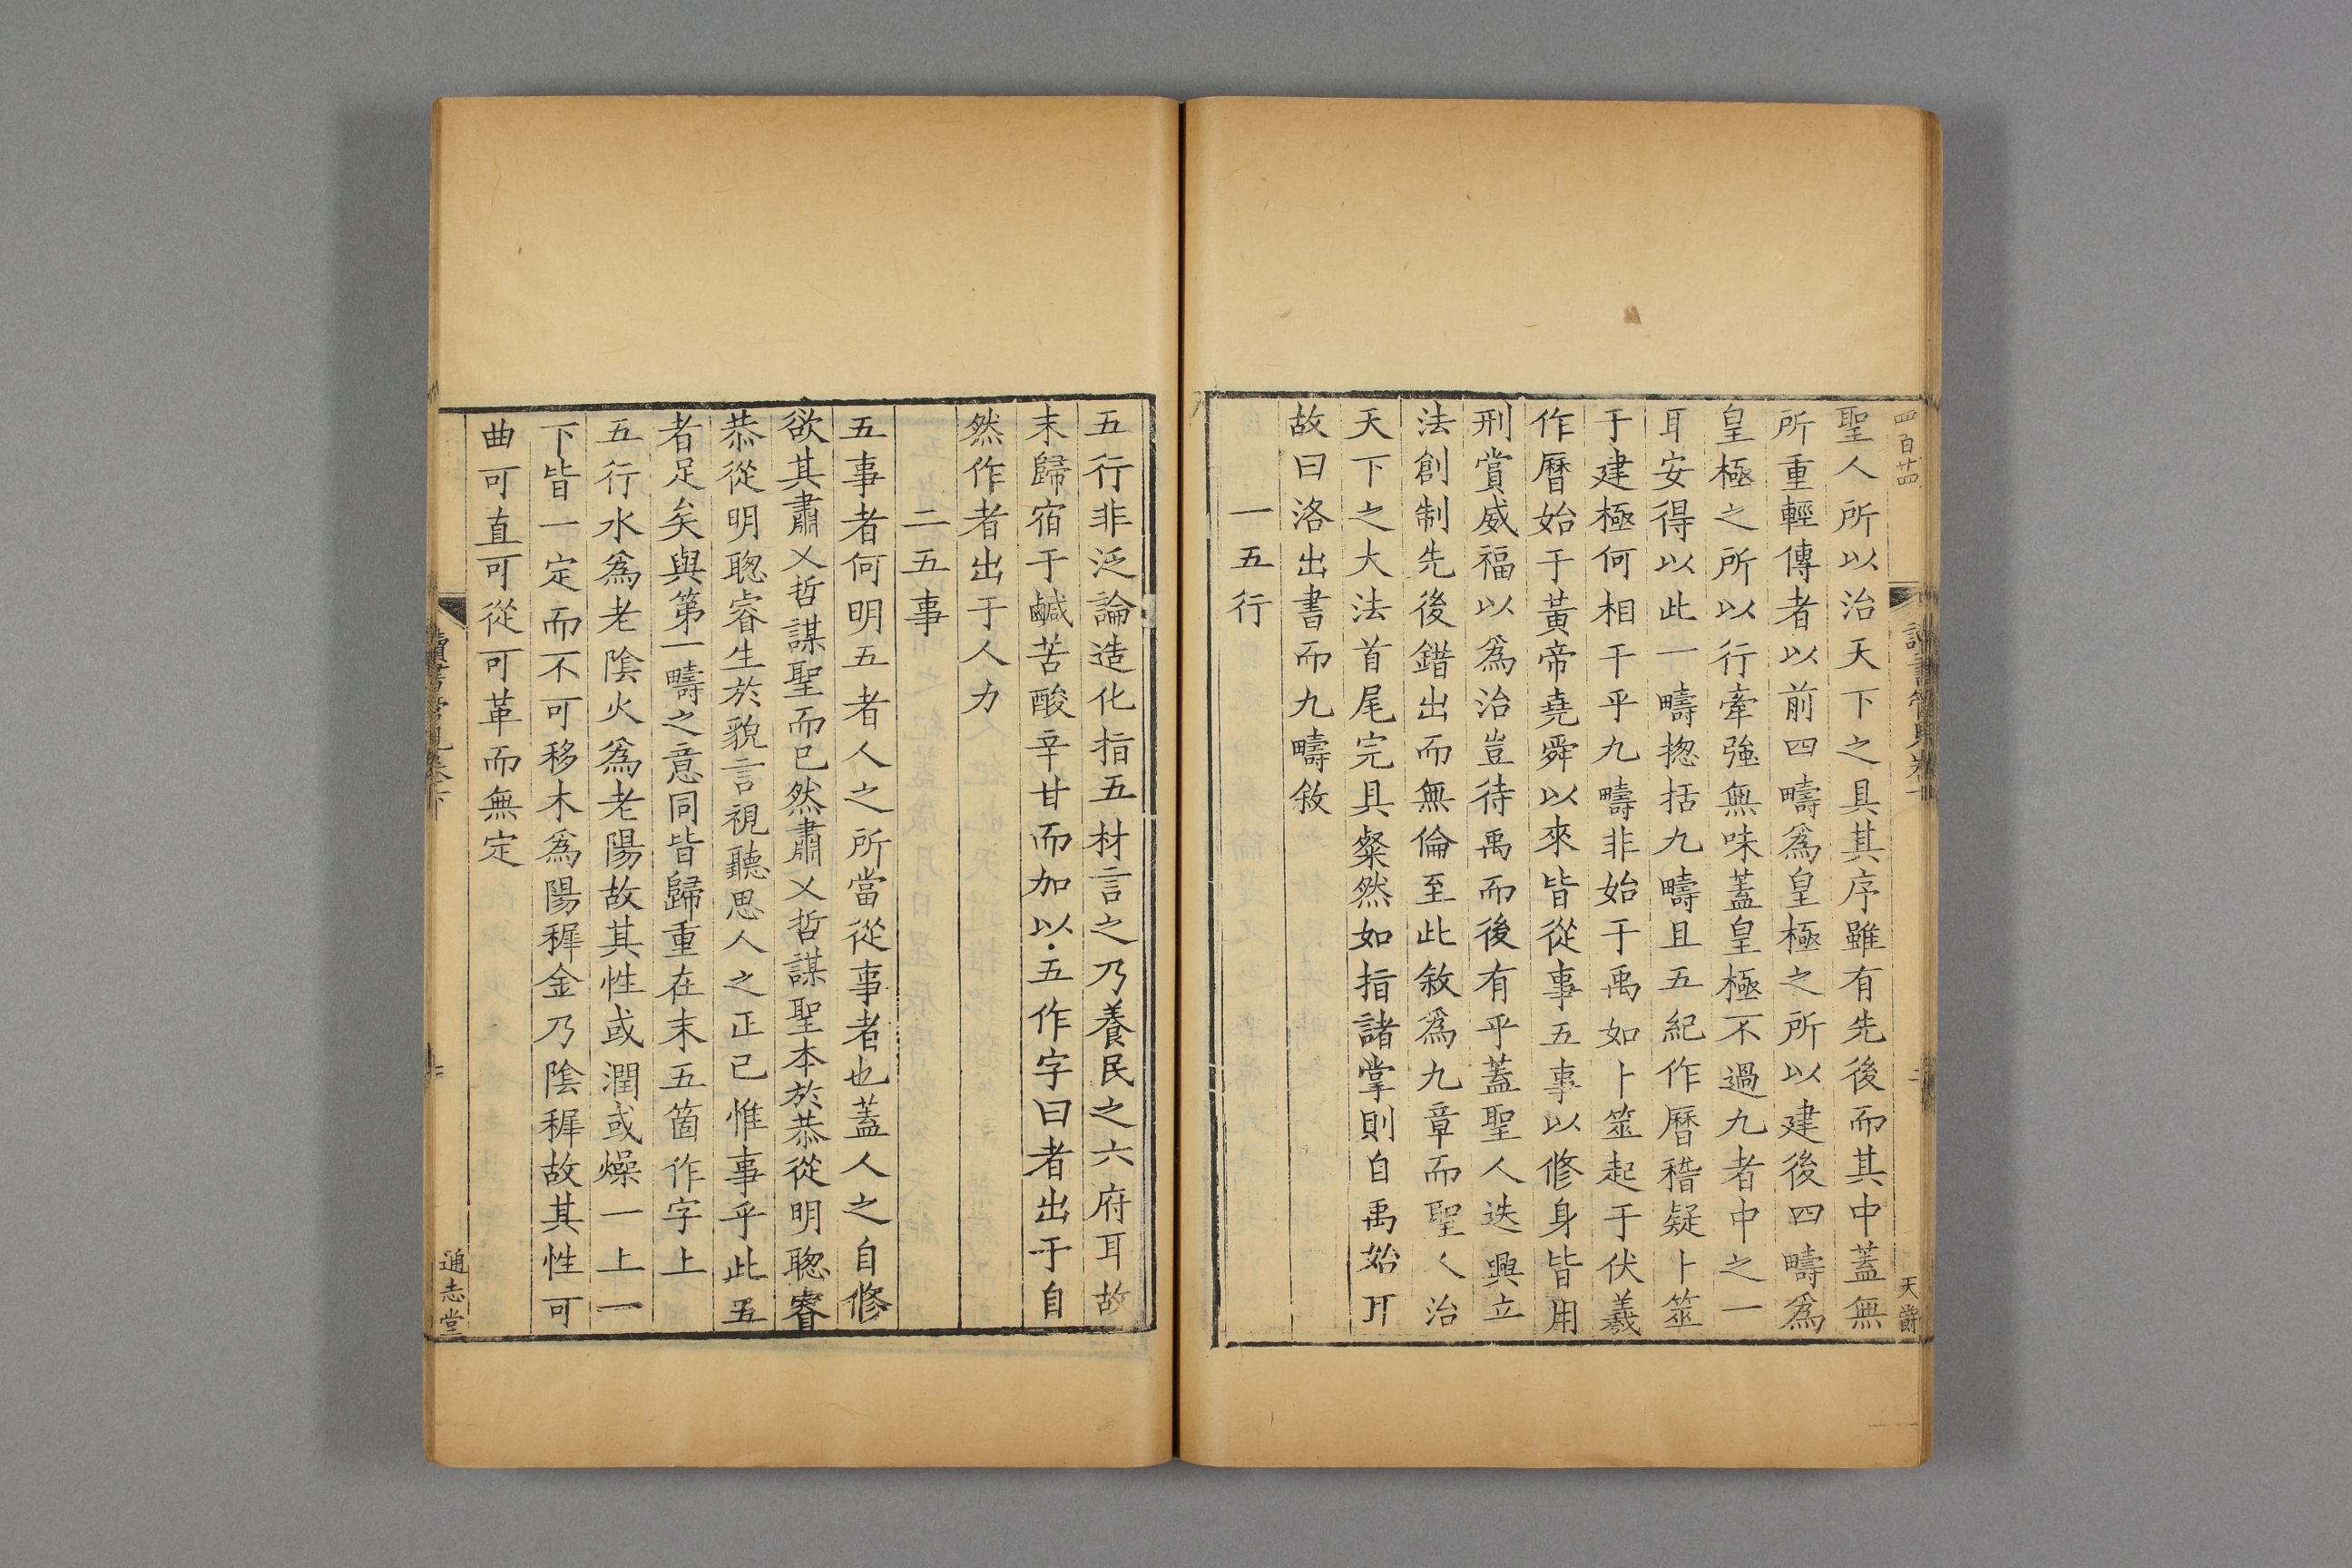 四百廿四
天爵
聖人所以治天下之具其序雖有先後而其中蓋無
所重輕傳者以前四疇爲皇極之所以建後四疇爲
皇極之所以行牽強無味蓋皇極不過九者中之一
耳安得以此一疇揔括九疇且五紀作曆稽疑卜筮
于建極何相干乎九疇非始于禹如卜筮起于伏羲
作曆始于黃帝堯舜以來皆從事五事以修身皆用
刑賞威福以爲治豈待禹而後有乎蓋聖人迭興立
法創制先後錯出而無倫至此敘爲九章而聖人治
天下之大法首尾完具粲然如指諸掌則自禹始
故曰洛出書而九疇敘
一五行
五行非泛論造化指五材言之乃養民之六府耳故
末歸宿于鹹苦酸辛甘而加以五作字曰者出于自
然作者出于人力
二五事
五事者何明五者人之所當從事者也蓋人之自修
欲其肅乂哲謀聖而已然肅乂哲謀聖本於恭從明聦睿
恭從明聦睿生於貌言視聽思人之正己惟事乎此五
者足矣與第一疇之意同皆歸重在末五箇作字上
五行水爲老陰火爲老陽故其性或潤或燥一上一
下皆一定而不可移木爲陽穉金乃陰穉故其性可
曲可直可從可革而無定
通志堂